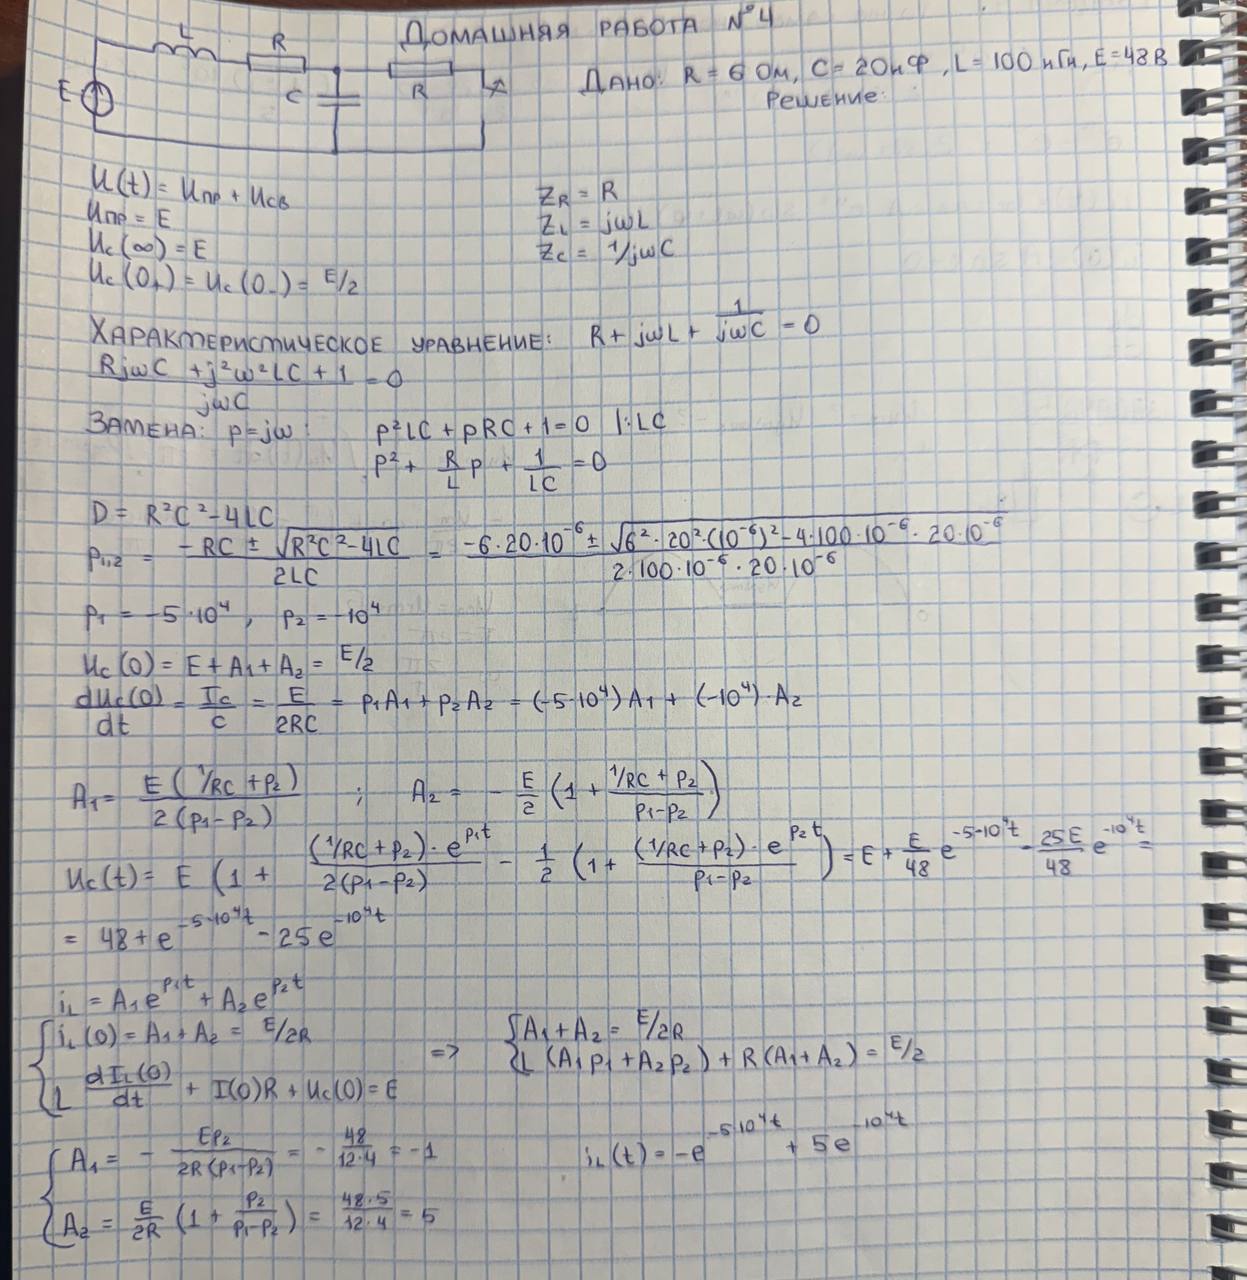 ДОМАШНЯЯ РАБОТА №4
L
R
E
C
R
ДАНО: R = 6 Ом, C = 20мкФ, L = 100 мкГн, E = 48В
РЕШЕНИЕ:
U(t) = Uпр + Uсв
Uпр = E
Uc(∞) = E
Uc(0+) = Uc(0-) = E/2
ZR = R
ZL = jωL
Zc = 1/jωC
ХАРАКТЕРИСТИЧЕСКОЕ УРАВНЕНИЕ: R + jωL + 1/jωC = 0
(RjωC + j²ω²LC + 1)/jωC = 0
ЗАМЕНА: p=jω: p²LC + pRC + 1 = 0 |:LC
p² + R/L p + 1/LC = 0
D = R²C² - 4LC
p1,2 = (-RC ± √(R²C² - 4LC))/2LC = (-6·20·10⁻⁶ ± √(6²·20²·(10⁻⁶)² - 4·100·10⁻⁶·20·10⁻⁶))/(2·100·10⁻⁶·20·10⁻⁶)
p1 = -5·10⁴, p2 = -10⁴
Uc(0) = E + A1 + A2 = E/2
dUc(0)/dt = Ic/C = E/2RC = p1A1 + p2A2 = (-5·10⁴)A1 + (-10⁴)·A2
A1 = E(1/RC + p2)/2(p1-p2) ; A2 = - E/2 (1 + (1/RC + p2)/(p1-p2))
Uc(t) = E (1 + (1/RC + p2)·e^p1t/2(p1-p2) - 1/2 (1 + (1/RC + p2)·e^p2t/(p1-p2))) = E + E/48 e^-5·10⁴t - 25E/48 e^-10⁴t =
= 48 + e^-5·10⁴t - 25e^-10⁴t
iL = A1e^p1t + A2e^p2t
{iL(0) = A1 + A2 = E/2R
L dIL(0)/dt + I(0)R + Uc(0) = E
=> {A1 + A2 = E/2R
L (A1p1 + A2p2) + R(A1 + A2) = E/2
{A1 = - Ep2/2R(p1-p2) = - 48/12·4 = -1
A2 = E/2R (1 + p2/(p1-p2)) = 48·5/12·4 = 5
iL(t) = -e^-5·10⁴t + 5e^-10⁴t